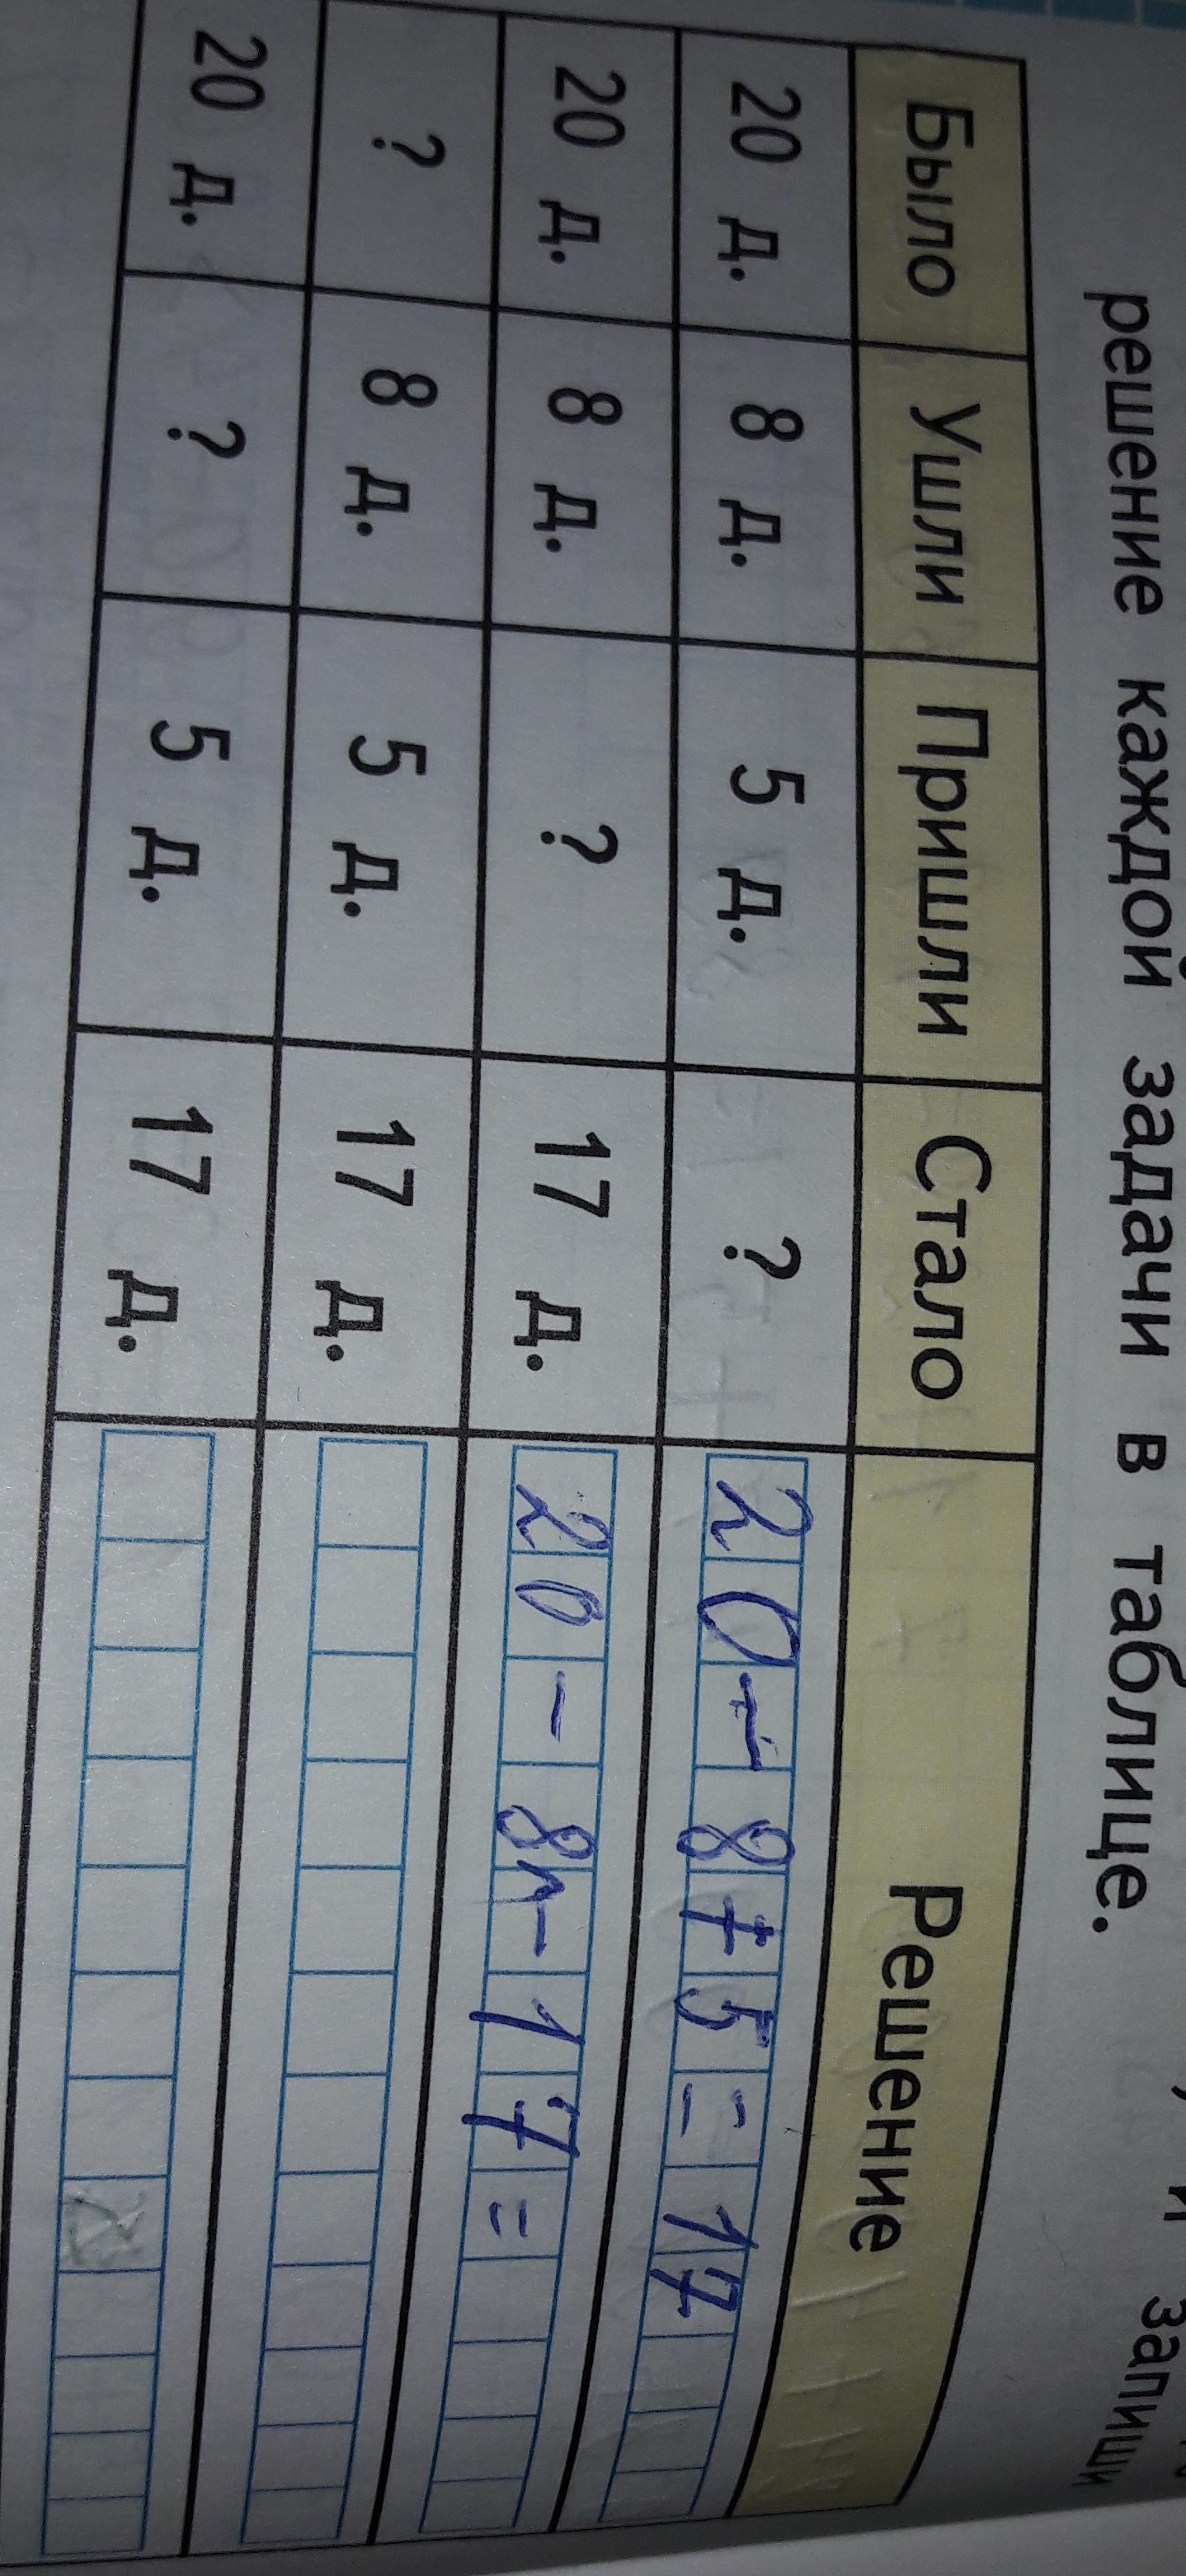 и запиши
решение каждой задачи в таблице.
Было Ушли Пришли Стало Решение
20 д. 8 д. 5 д. ? 20-8+5=17
20 д. 8 д. ? 17 д. 20-8 -17=
? 8 д. 5 д. 17 д.
20 д. ? 5 д. 17 д.